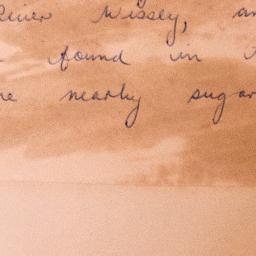 River Wissey, an
found in
nearby sugar